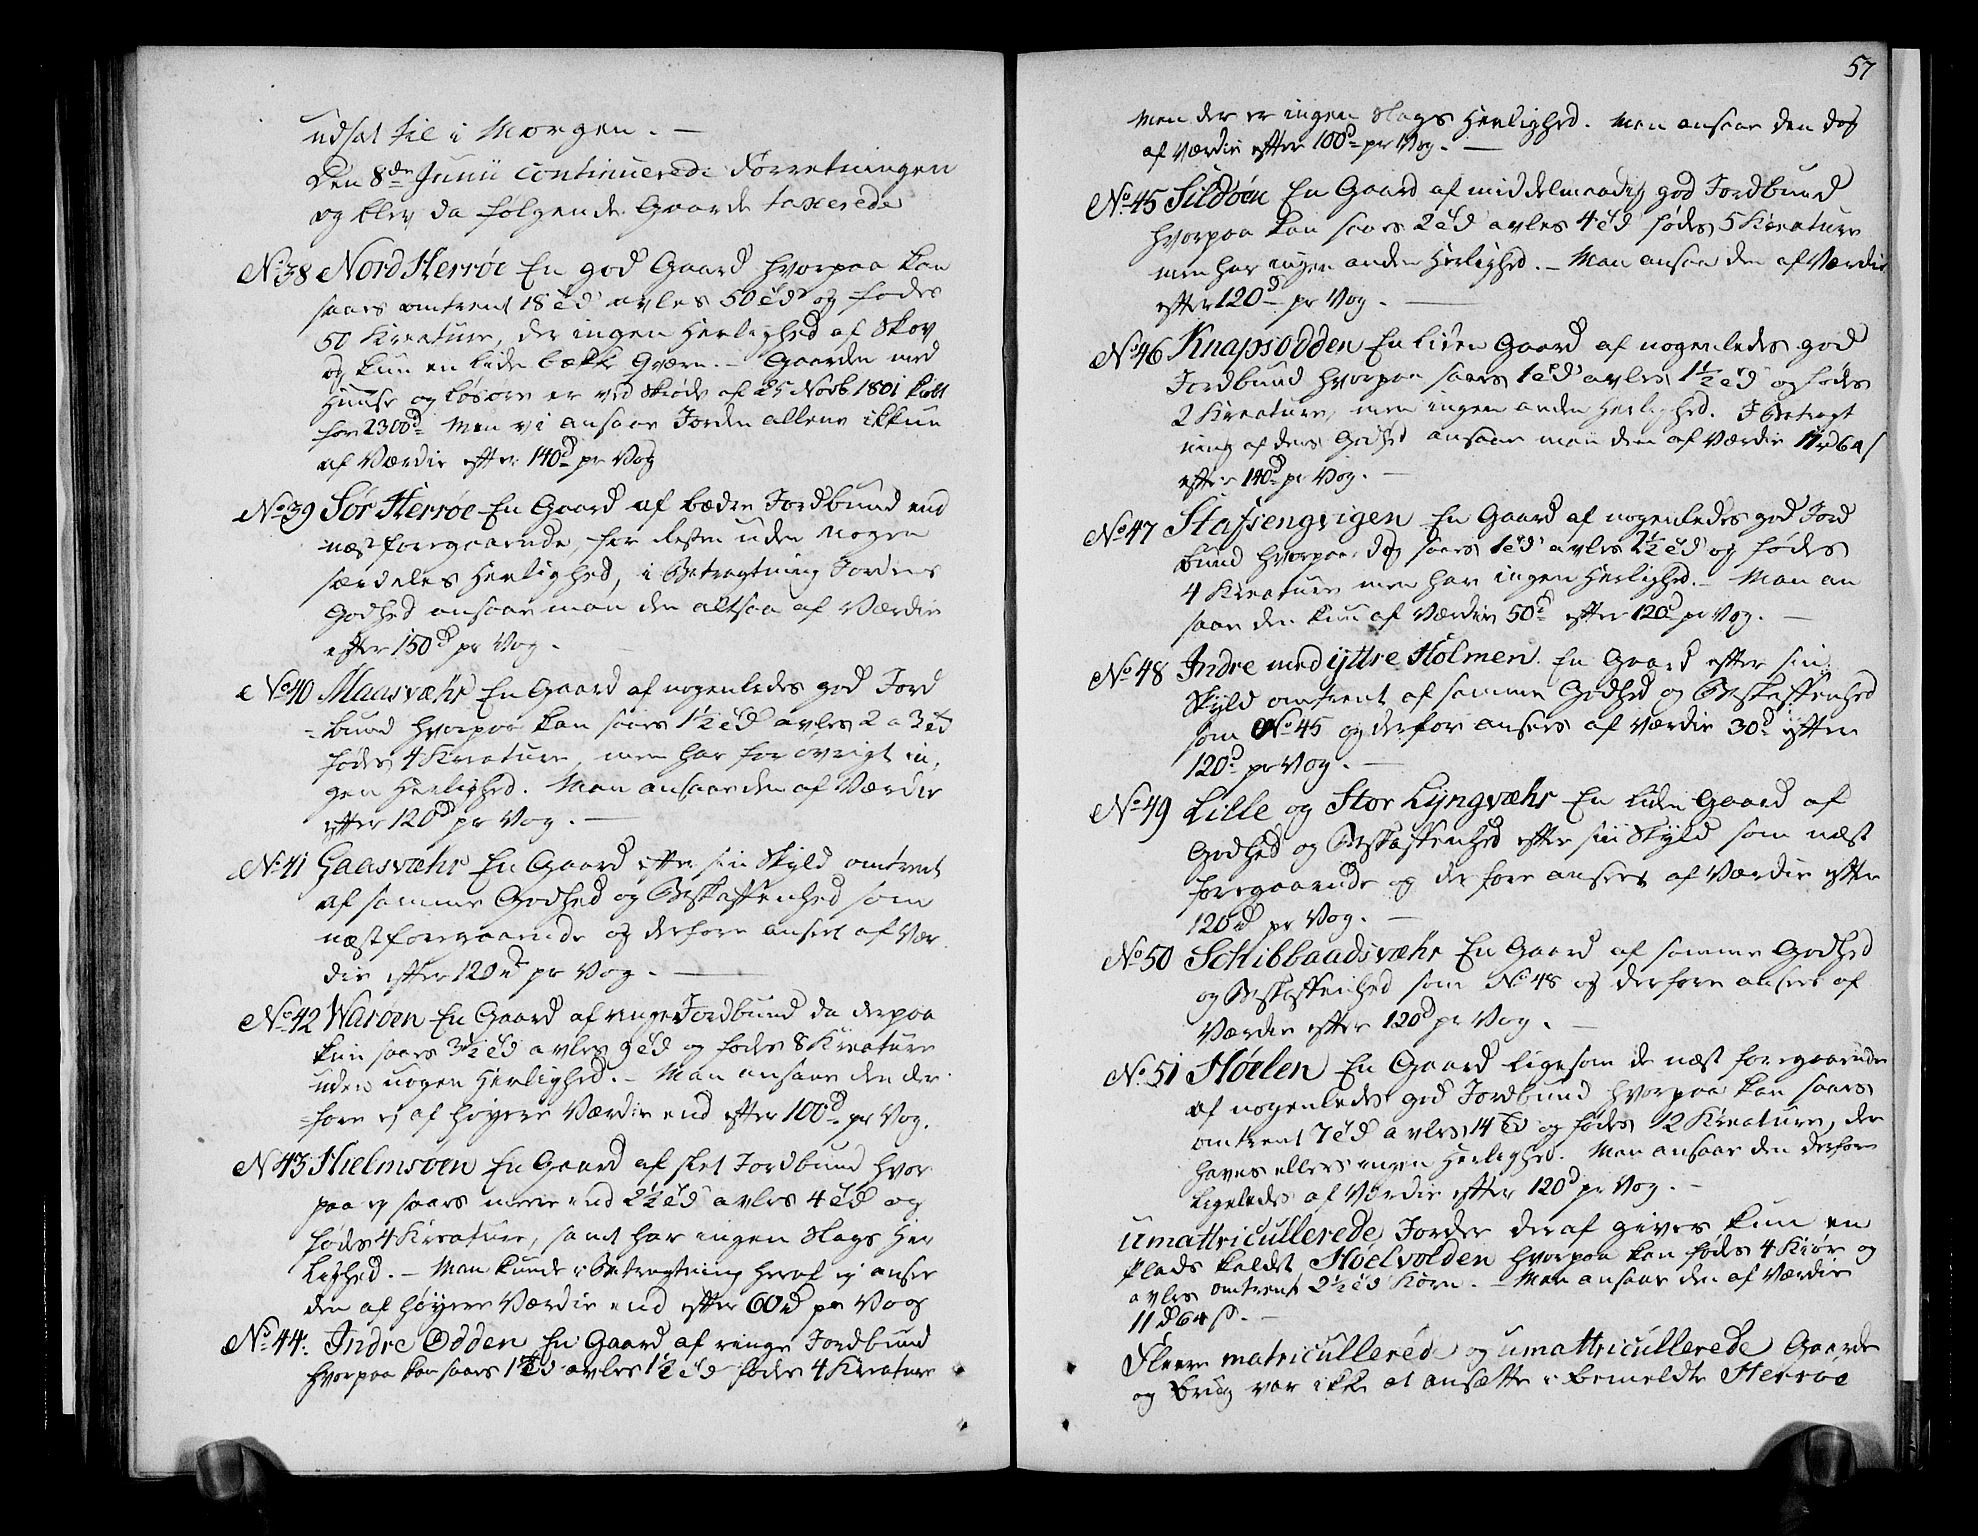 udsat til i Morgen. —
Den 8de Junii continuerede Forretningen
og blev da følgende Gaarde taxerede
No 38 Nord Herrøe En god Gaard hvorpaa kan
saaes omtrent 18 td avles 50 td og fødes
50 Kreature, der ingen Herlighed af Skov
og kun en liden bække Qværn. — Gaarden med
Huuse og Løsøre er ved Skiøde af 25 Novb. 1801 kiøbt
for 2300 d Men vi ansaae Jorden allene ikkun
af Værdie efter 140 d pr Vog
No 39 Sør Herrøe En Gaard af bædre Jordbund end
næstforegaaende, for Resten uden nogen
særdeles Herlighed, i Betragtning Jordens
Godhed ansaae man den altsaa af Værdie
efter 150 d pr Vog.
No 40 Maasvæhr En Gaard af nogenledes god Jord
-bund hvorpaa kan saaes 1½ td avles 2 a 3 td
fødes 4 Kreature, men har for øvrigt in-
gen Herlighed. Man ansaae den af Værdie
efter 120 d pr Vog. —
No 41 Gaasvæhr En Gaard efter sin Skyld omtrent
af samme Godhed og Beskaffenhed som
næstforegaaende og derfore anseet af Vær
die efter 120 d pr Vog. —
No 42 Warøen En Gaard af ringe Jordbund da derpaa
kun saaes 3½ td avles 9 td og fødes 8 Kreature
uden nogen Herlighed. — Man ansaae den der
-fore ej af høyere Værdie end efter 100 d pr Vog.
No 43 Hielmsøen En Gaard af slet Jordbund hvor
paa ej saaes mere end 2½ td avles 4 td og
fødes 4 Kreature, samt har ingen Slags Her
lighed. — Man kunde i Betragtning heraf ej ansee
den af høyere Værdie end efter 60 d pr Vog
No 44. Indre Odden En Gaard af ringe Jordbund
hvorpaa kan saaes 1 td avles 1½ td fødes 4 Kreature
57
men der er ingen Slags Herlighed. Man ansaae den dog
af Værdie efter 100 d pr Vog. —
No 45 Sildøen En Gaard af middelmaadig god Jordbund
hvorpaa kan saaes 2 td avles 4 td fødes 5 Kreature
men har ingen anden Herlighed. — Man ansaae den af Værdie
efter 120 d pr Vog. —
No 46 Knapsodden En liden Gaard af nogenledes god
Jordbund hvorpaa saaes 1 td avles 1½ td og fødes
2 Kreature, men ingen anden Herlighed. I Betragt
ning af dens Godhed ansaae man den af Værdie 11 d 64 s
efter 140 d pr Vog. —
No 47 Stafsengvigen En Gaard af nogenledes god Jord
bund hvorpaa dog saaes 1 td avles 2½ td og fødes
4 Kreature men har ingen Herlighed. — Man an
saae den kun af Værdie 50 d efter 120 d pr Vog. —
No 48 Indre med yttre Holmen. En Gaard efter sin
Skyld omtrent af samme Godhed og Beskaffenhed
som No 45 og derfor ansees af Værdie 30 d efter
120 d pr Vog. —
No 49 Lille og Stor Lyngvæhr En liden Gaard af
Godhed og Beskaffenhed efter sin Skyld som næst
foregaaende og derfore ansees af Værdie efter
120 d pr Vog. —
No 50 Schibbaadsvæhr En Gaard af samme Godhed
og Beskaffenhed som No 48 og derfore anseet af
Værdie efter 120 d pr Vog. —
No 51 Høelen En Gaard ligesom de næst foregaaende
af nogenledes god Jordbund hvorpaa kan saaes
omtrent 7 td avles 14 td og fødes 12 Kreature, der
haves ellers ingen Herlighed. Man ansaae den derfore
ligeledes af Værdie efter 120 d pr Vog. —
Umattricullerede Jorder deraf gives kun en
Plads kaldt Høelvolden hvorpaa kan fødes 4 Kiør og
avles omtrent 2½ td Korn. — Man ansaae den af Værdie
11 d 64 s. —
Fleere matricullerede og umattricullerede Gaarde
og brug var ikke at ansætte i bemeldte Herrøe